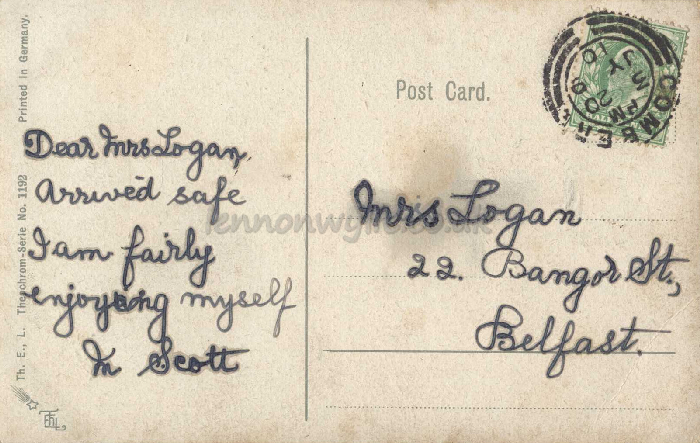 Printed in Germany.
Th. E., L. Theochrom-Serie No. 1192
Dear Mrs Logan,
Arrived safe
I am fairly
enjoying myself
M Scott
Post Card.
COMBER
Mrs Logan
22. Bangor St.,
Belfast.
lennonwylie.co.uk